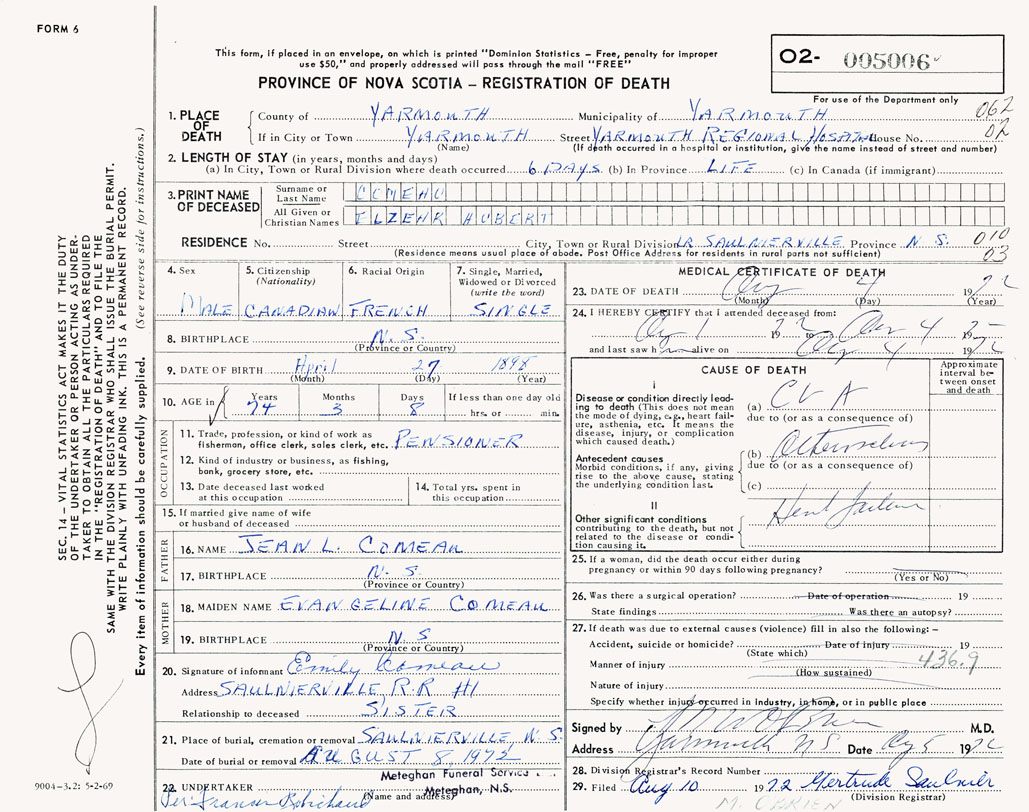 FORM 6
This form, if placed in an envelope, on which is printed "Dominion Statistics – Free, penalty for improper
use $50," and properly addressed will pass through the mail "FREE"
PROVINCE OF NOVA SCOTIA – REGISTRATION OF DEATH
02- 005006
For use of the Department only
062
02
1. PLACE OF DEATH
County of YARMOUTH Municipality of YARMOUTH
If in City or Town YARMOUTH Street YARMOUTH REGIONAL HOSPITAL House No.
(Name) (If death occurred in a hospital or institution, give the name instead of street and number)
2. LENGTH OF STAY (in years, months and days)
(a) In City, Town or Rural Division where death occurred 6 DAYS (b) In Province LIFE (c) In Canada (if immigrant)
3. PRINT NAME OF DECEASED
Surname or Last Name COMEAU
All Given or Christian Names ELZEAR HUBERT
RESIDENCE No. Street City, Town or Rural Division LR SAULNIERVILLE Province N S. 010
(Residence means usual place of abode. Post Office Address for residents in rural parts not sufficient) 03
4. Sex
MALE
5. Citizenship
(Nationality)
CANADIAN
6. Racial Origin
FRENCH
7. Single, Married,
Widowed or Divorced
(write the word)
SINGLE
8. BIRTHPLACE N. S.
(Province or Country)
9. DATE OF BIRTH April 27 1898
(Month) (Day) (Year)
10. AGE in
Years Months Days If less than one day old
74 3 8 hrs. or min.
OCCUPATION
11. Trade, profession, or kind of work as
fisherman, office clerk, sales clerk, etc. PENSIONER
12. Kind of industry or business, as fishing,
bank, grocery store, etc.
13. Date deceased last worked
at this occupation
14. Total yrs. spent in
this occupation
15. If married give name of wife
or husband of deceased
FATHER
16. NAME JEAN L. COMEAU
17. BIRTHPLACE N. S.
(Province or Country)
MOTHER
18. MAIDEN NAME EVANGELINE COMEAU
19. BIRTHPLACE N. S
(Province or Country)
20. Signature of informant Emily Comeau
Address SAULNIERVILLE R.R #1
Relationship to deceased SISTER
21. Place of burial, cremation or removal SAULNIERVILLE N S.
Date of burial or removal AUGUST 8, 1972
22. UNDERTAKER Meteghan Funeral Service
(Name and address) Meteghan, N.S.
Per: Francis Robichaud
MEDICAL CERTIFICATE OF DEATH
23. DATE OF DEATH Aug 4 1972
(Month) (Day) (Year)
24. I HEREBY CERTIFY that I attended deceased from:
Aug 1 1972 to Aug 4 19
and last saw h alive on Aug 4 1972
CAUSE OF DEATH
Approximate interval between onset and death
I
Disease or condition directly leading to death (This does not mean the mode of dying, e.g., heart failure, asthenia, etc. It means the disease, injury, or complication which caused death.)
(a) CVA
due to (or as a consequence of)
Antecedent causes
Morbid conditions, if any, giving rise to the above cause, stating the underlying condition last.
(b)
due to (or as a consequence of)
(c)
II
Other significant conditions
contributing to the death, but not related to the disease or condition causing it.
Heart failure
25. If a woman, did the death occur either during
pregnancy or within 90 days following pregnancy?
(Yes or No)
26. Was there a surgical operation? Date of operation 19
State findings Was there an autopsy?
27. If death was due to external causes (violence) fill in also the following: –
Accident, suicide or homicide? Date of injury 19
(State which)
436.9
Manner of injury
(How sustained)
Nature of injury
Specify whether injury occurred in industry, in home, or in public place
Signed by M.D.
Address Yarmouth NS Date Aug 5 1972
28. Division Registrar's Record Number
29. Filed Aug 10 1972 Gertrude Saulnier
(Division Registrar)
SEC. 14 – VITAL STATISTICS ACT MAKES IT THE DUTY
OF THE UNDERTAKER OR PERSON ACTING AS UNDER-
TAKER TO OBTAIN ALL THE PARTICULARS REQUIRED
IN THE "REGISTRATION OF DEATH" AND TO FILE THE
SAME WITH THE DIVISION REGISTRAR WHO SHALL ISSUE THE BURIAL PERMIT.
WRITE PLAINLY WITH UNFADING INK. THIS IS A PERMANENT RECORD.
Every item of information should be carefully supplied. (See reverse side for instructions.)
9004-3.2: 5-2-69